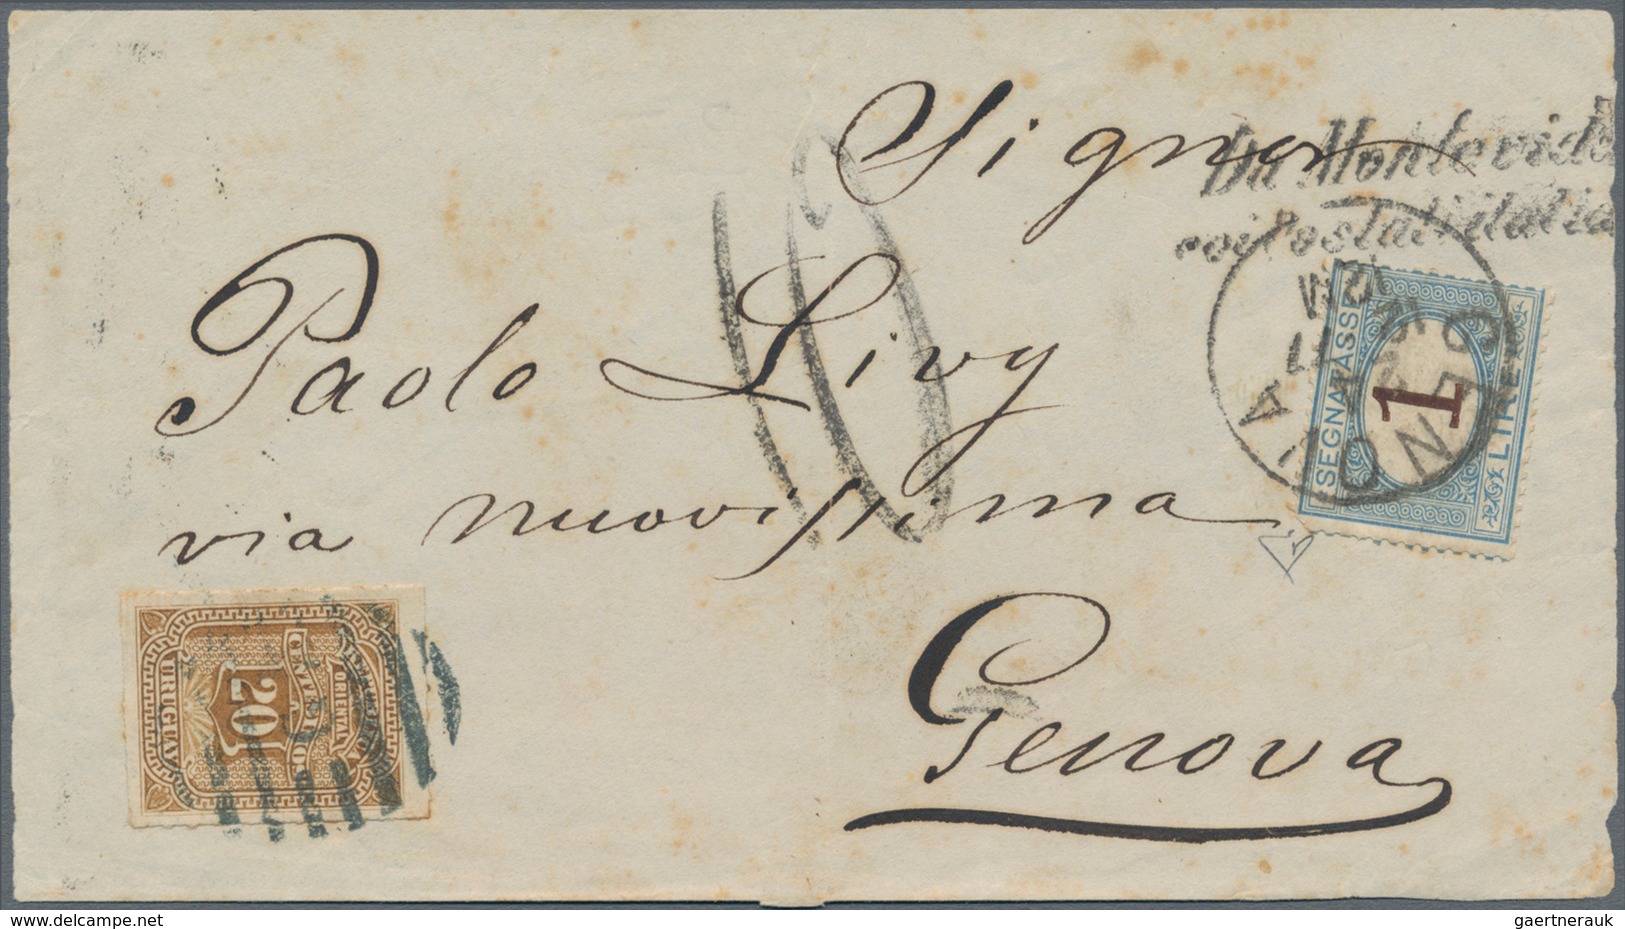 Signor
Da Montevideo
coi Postali italia
Paolo Livy
via nuovissima
Genova
10
GENOVA
SEGNATASSE
1
LIRE
REPUBLICA ORIENTAL
URUGUAY
20
CENTECIMOS
delcampe.net
gaertnerauk